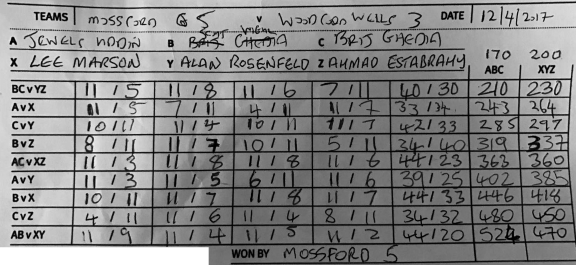 TEAMS MOSSFORD 5 V WOODFORD WELLS 3 DATE 12/4/2017
A JEWELS UDDIN B GHEDIA C BRIJ GHEDIA 170 200
X LEE MARSON Y ALAN ROSENFELD Z AHMAD ESTABRAHY ABC XYZ
BCvYZ 11/5 11/8 11/6 7/11 40/30 210 230
AvX 11/5 7/11 4/11 11/7 33/34 243 264
CvY 10/11 11/4 10/11 11/7 42/33 285 297
BvZ 8/11 11/7 10/11 5/11 34/40 319 337
ACvXZ 11/3 11/8 11/8 11/6 44/23 363 360
AvY 11/3 11/5 6/11 11/6 39/25 402 385
BvX 10/11 11/7 11/8 11/7 44/33 446 418
CvZ 4/11 11/6 11/4 8/11 34/32 480 450
ABvXY 11/9 11/4 11/5 11/2 44/20 524 470
WON BY MOSSFORD 5